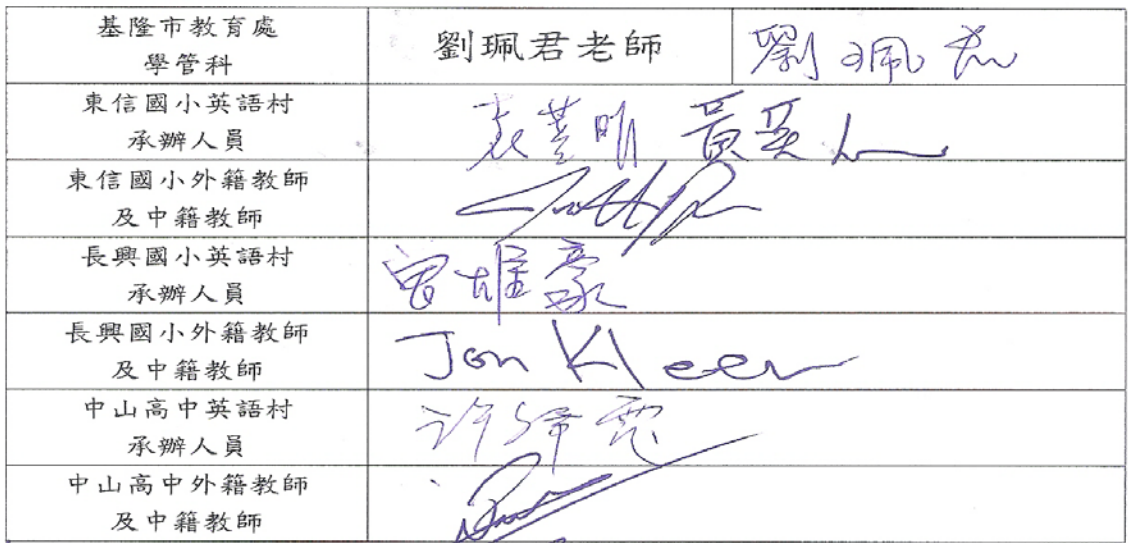 基隆市教育處
學管科
劉珮君老師
劉珮君
東信國小英語村
承辦人員
東信國小外籍教師
及中籍教師
長興國小英語村
承辦人員
長興國小外籍教師
及中籍教師
Jon Kleer
中山高中英語村
承辦人員
中山高中外籍教師
及中籍教師